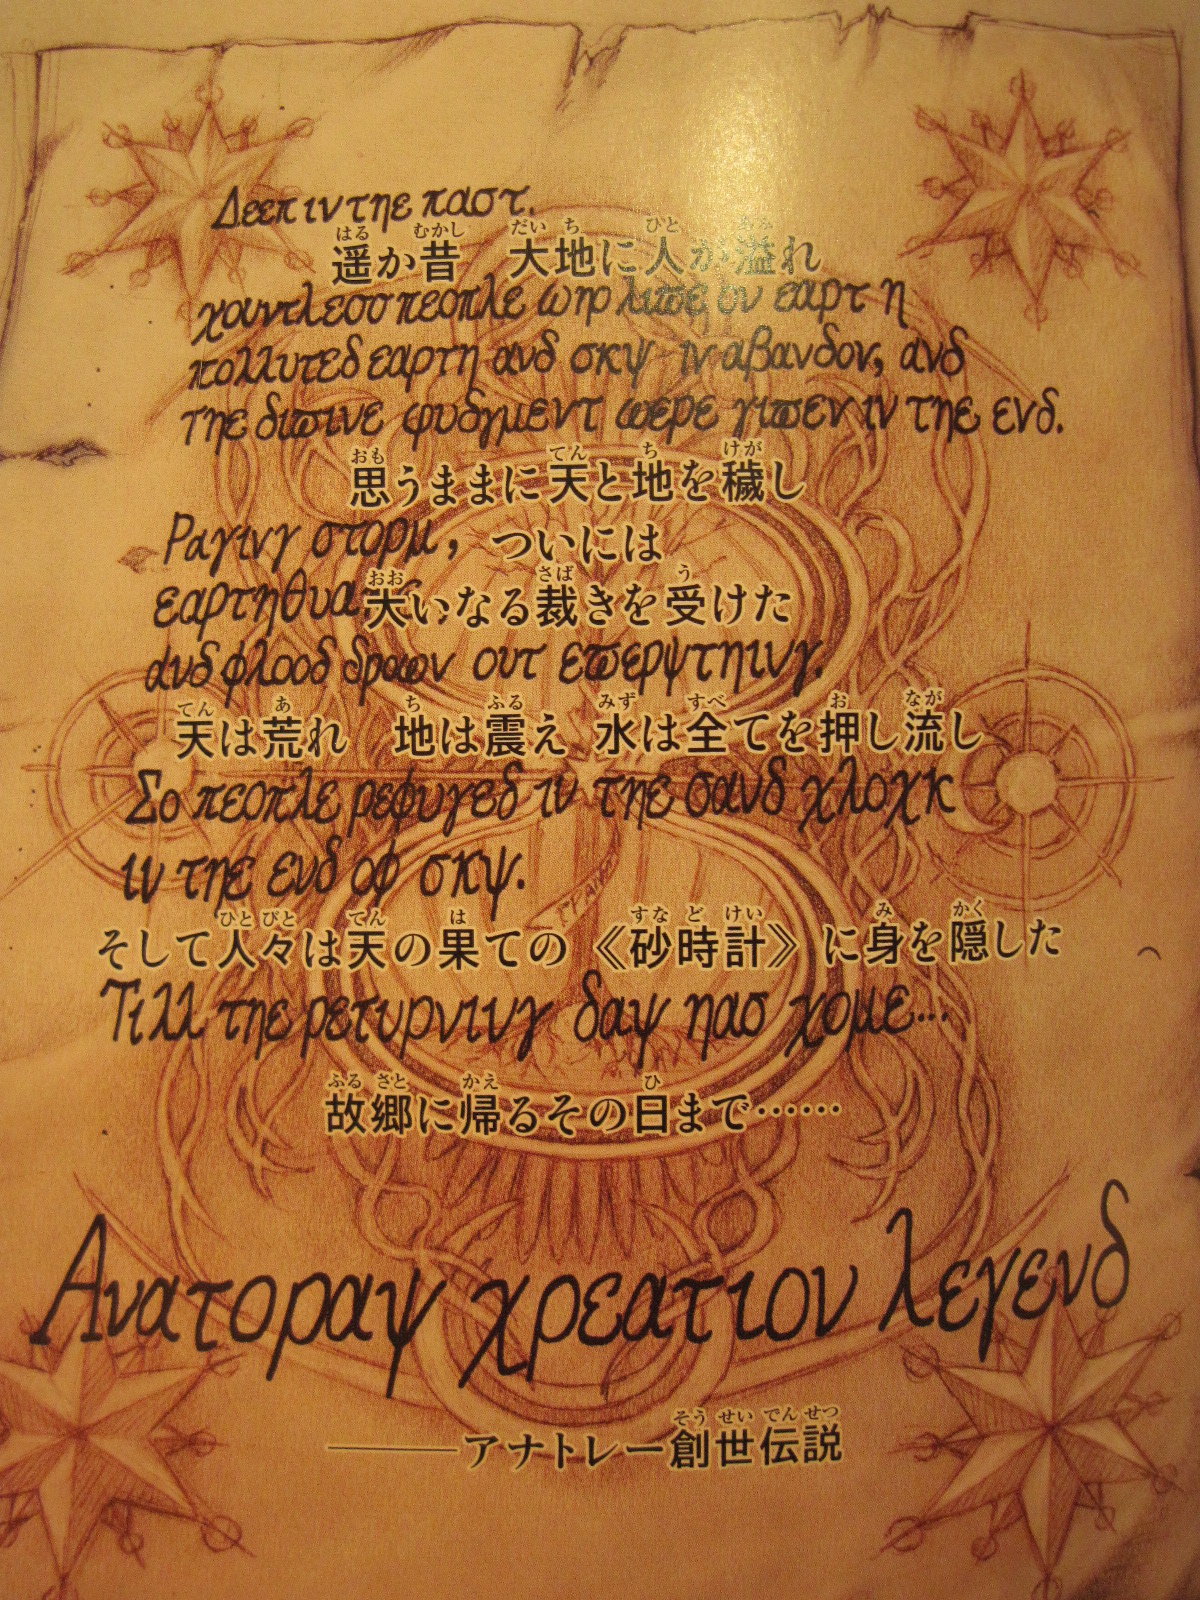 Δεεπ ιν τηε παστ.
遥か昔　大地に人が溢れ
χουντλεσσ πεοπλε ωηο λιϖε ον εαρτη
πολλυτεδ εαρτη ανδ σκψ ιν αβανδον, ανδ
τηε διϖινε φυδγμεντ ωερε γιϖεν ιν τηε ενδ.
思うままに天と地を穢し
Ραγινγ στορμ,
ついには
εαρτηθυα
大いなる裁きを受けた
ανδ φλοοδ δραων ουτ εϖερψτηινγ.
天は荒れ　地は震え　水は全てを押し流し
Σο πεοπλε ρεφυγεδ ιν τηε σανδ χλοχκ
ιν τηε ενδ οφ σκψ.
そして人々は天の果ての《砂時計》に身を隠した
Τιλλ τηε ρετυρνινγ δαψ ηασ χομε...
故郷に帰るその日まで……
Ανατοραψ χρεατιον λεγενδ
――アナトレー創世伝説